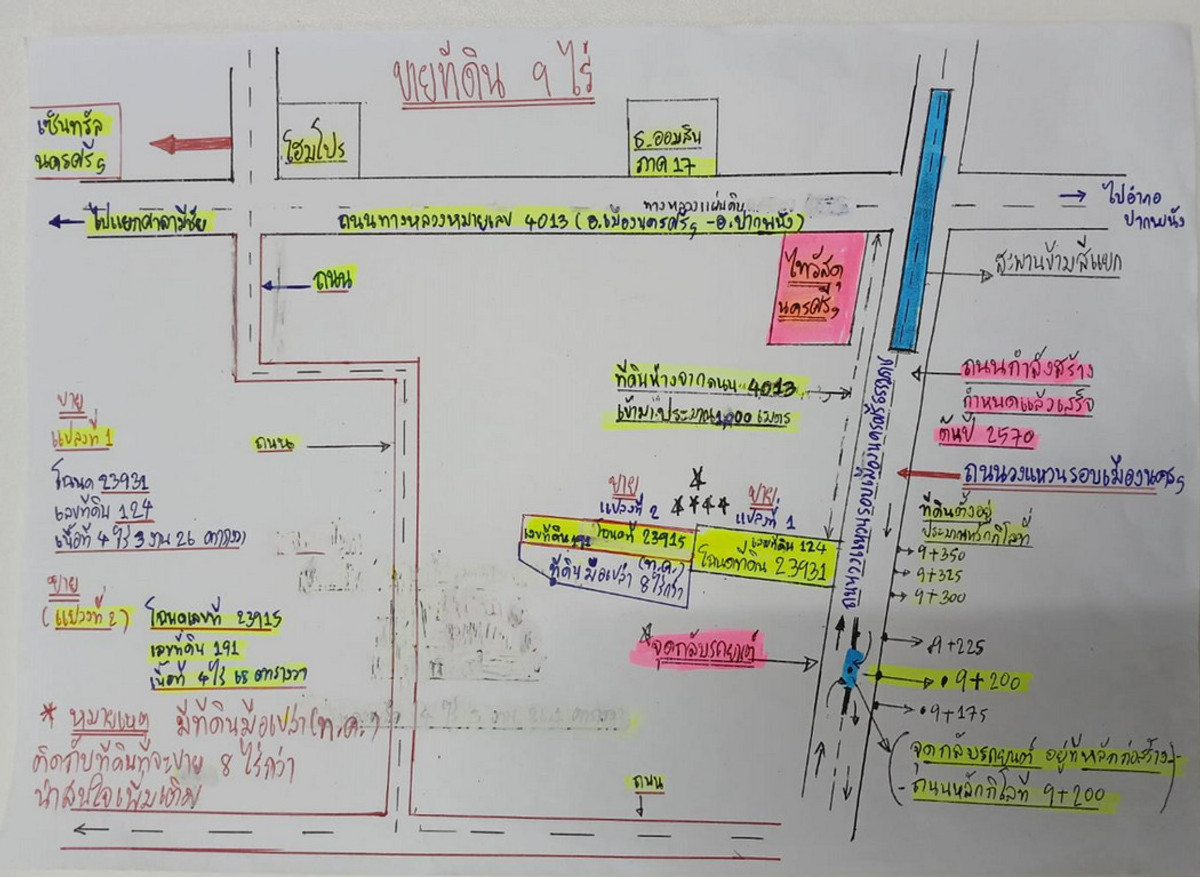 ขายที่ดิน 9 ไร่
เซ็นทรัล
นครศรีฯ
โฮมโปร
ธ.ออมสิน
ภาค 17
ไปแยกศาลามีชัย
ทางหลวงแผ่นดิน
ถนนทางหลวงหมายเลข 4013 (อ.เมืองนครศรีฯ -อ.ปากพนัง)
ไปอำเภอ
ปากพนัง
ถนน
ไทวัสดุ
นครศรีฯ
สะพานข้ามสี่แยก
ที่ดินห่างจากถนน 4013
เข้ามาประมาณ 1,000 เมตร
ถนนกำลังสร้าง
กำหนดแล้วเสร็จ
ต้นปี 2570
ถนนวงแหวนรอบเมืองนครฯ
ขาย
แปลงที่ 1
โฉนด 23931
เลขที่ดิน 124
เนื้อที่ 4 ไร่ 3 งาน 26 ตารางวา
ถนน
ขาย
แปลงที่ 2
ขาย
แปลงที่ 1
เลขที่ดิน 191 โฉนดที่ 23915
เลขที่ดิน 124
โฉนดที่ดิน 23931
(ท.ค.)
ที่ดินมือเปล่า 8 ไร่กว่า
ที่ดินตั้งอยู่
ประมาณหลักกิโลที่
9+350
9+325
9+300
ขาย
(แปลงที่ 2)
โฉนดเลขที่ 23915
เลขที่ดิน 191
เนื้อที่ 4 ไร่ 68 ตารางวา
*จุดกลับรถยนต์
9+225
9+200
9+175
* หมายเหตุ มีที่ดินมือเปล่า (ท.ค.)
ติดกับที่ดินที่จะขาย 8 ไร่กว่า
น่าสนใจเพิ่มเติม
(จุดกลับรถยนต์ อยู่ที่หลักก่อสร้าง-
-ถนนหลักกิโลที่ 9+200)
ถนน